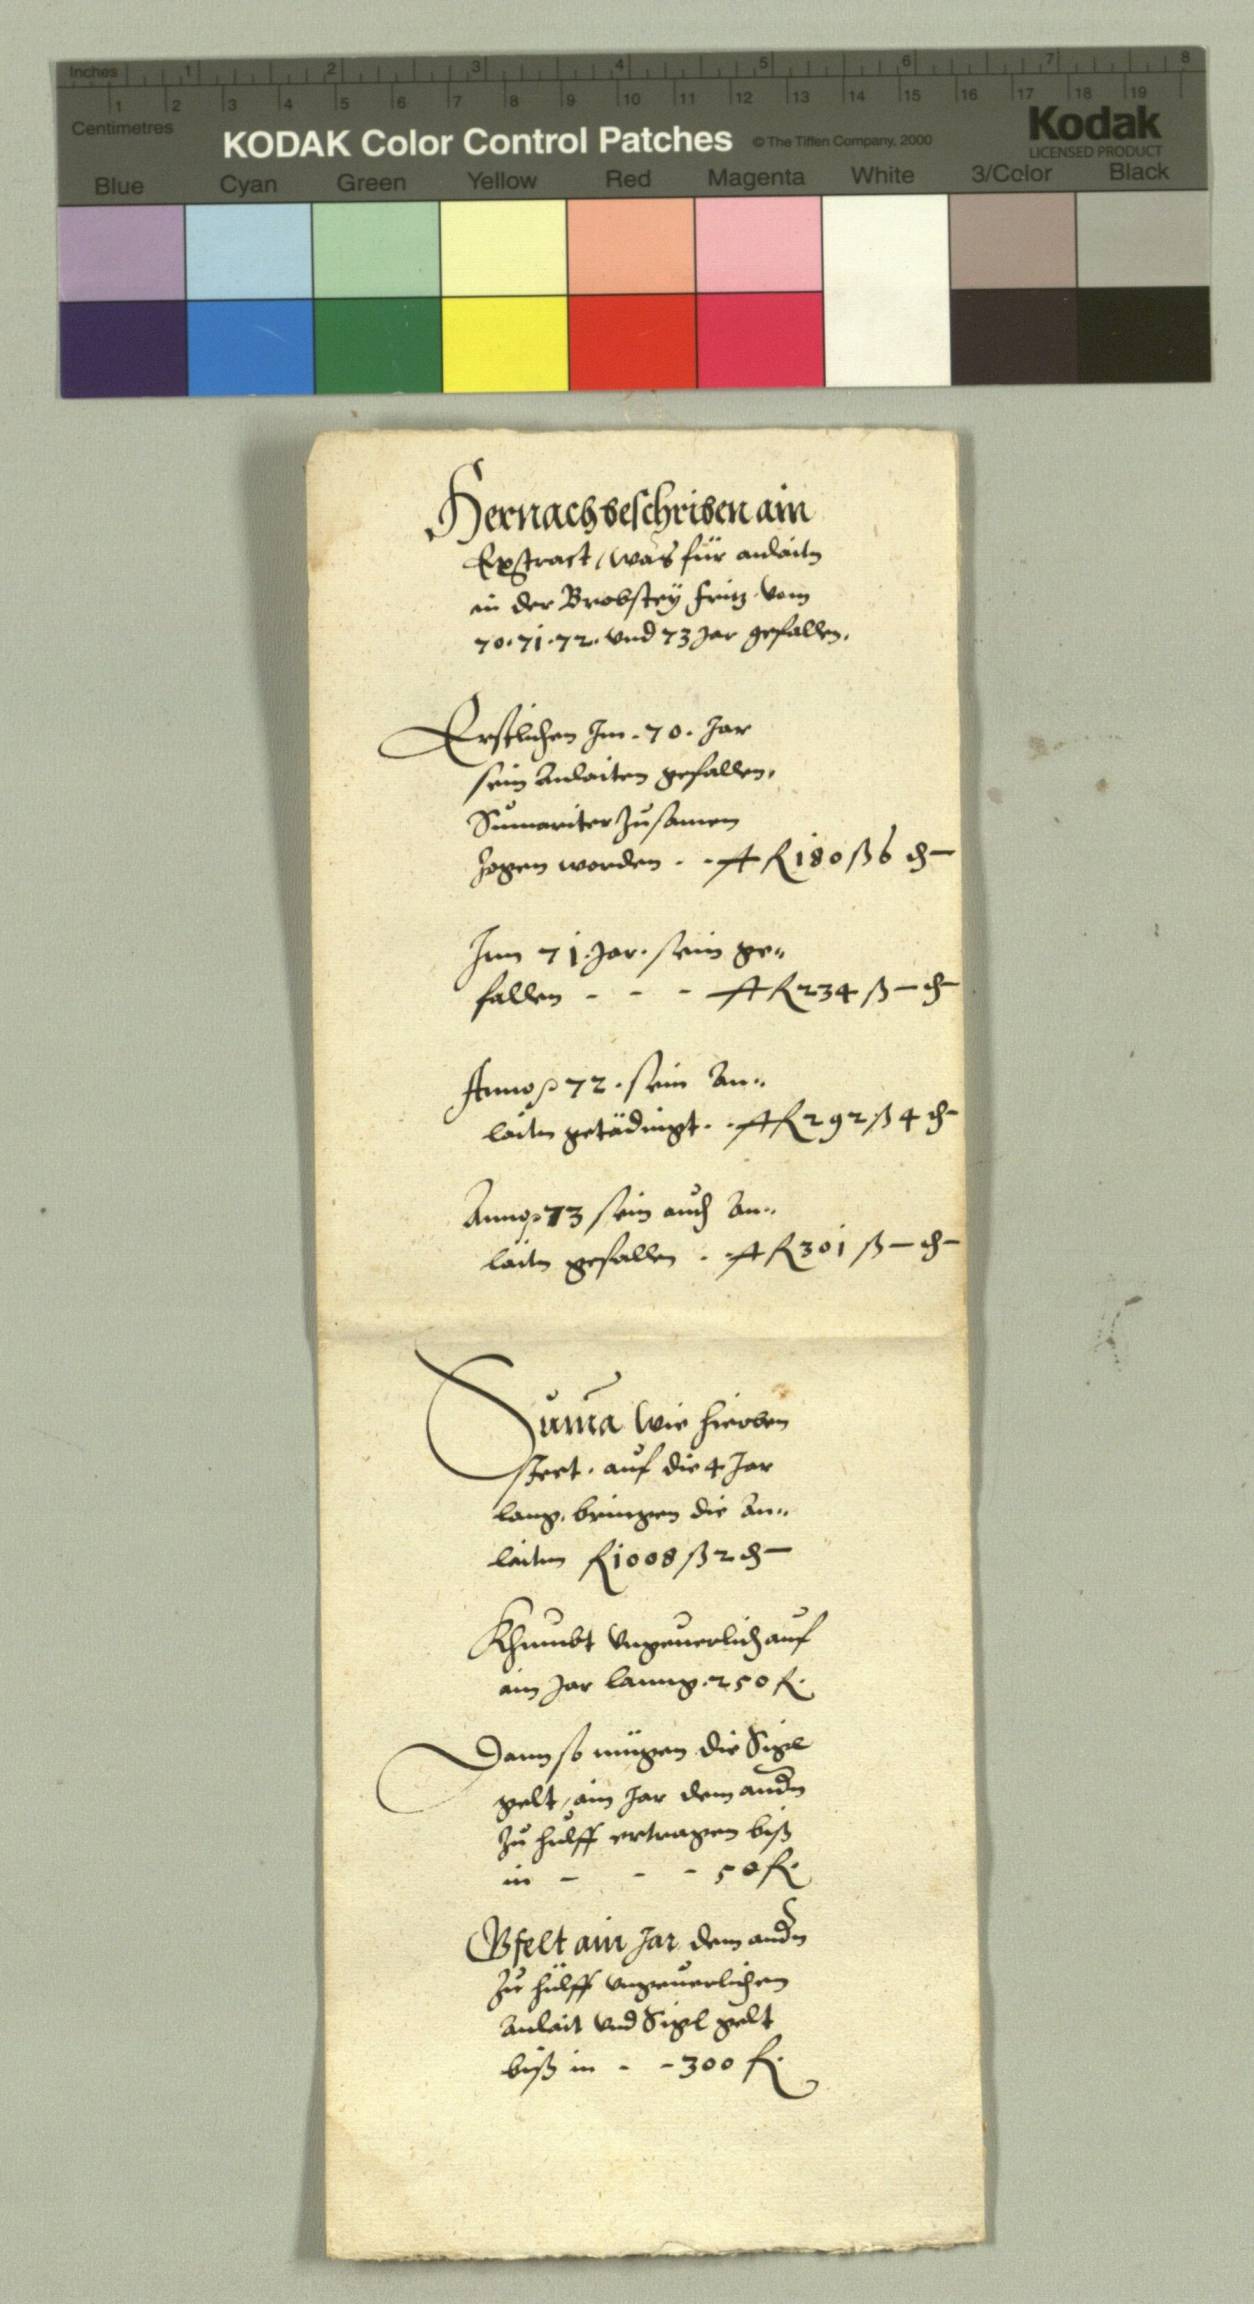 Inches 1 2 3 4 5 6 7 8
1 2 3 4 5 6 7 8 9 10 11 12 13 14 15 16 17 18 19
Centimetres
KODAK Color Control Patches © The Tiffen Company, 2000 Kodak
LICENSED PRODUCT
Blue Cyan Green Yellow Red Magenta White 3/Color Black
Hernach beschriben ain
Extract, was für anlaitn
in der Brobstey Fritz vom
70. 71. 72. vnd 73 Jar gefallen.
Erstlichen Im. 70. Jar
sein Anlaiten gefallen,
Sumariter zusamen
zogen worden - - fl 180 ß 6 ₰ —
Im 71. Jar. sein ge„
fallen - - - fl 234 ß — ₰ —
Anno 72. sein An„
laitn getädingt. - fl 292 ß 4 ₰ —
Anno 73 sein auch An„
laitn gefallen - fl 301 ß — ₰ —
Suma wie hieoben
steet. auf die 4 Jar
lang, bringen die An„
laiten fl 1008 ß 2 ₰ —
Khumbt vngeuerlich auf
ain Jar lanng. 250 fl.
Dann so mügen die Sigl
gelt, ain Jar dem andn
zu hülff ertragen biß
in - - - 50 fl.
Gfelt ain Jar dem andn
zu hülff vngeuerlichen
Anlait vnd Sigl gelt
biß in - - 300 fl.